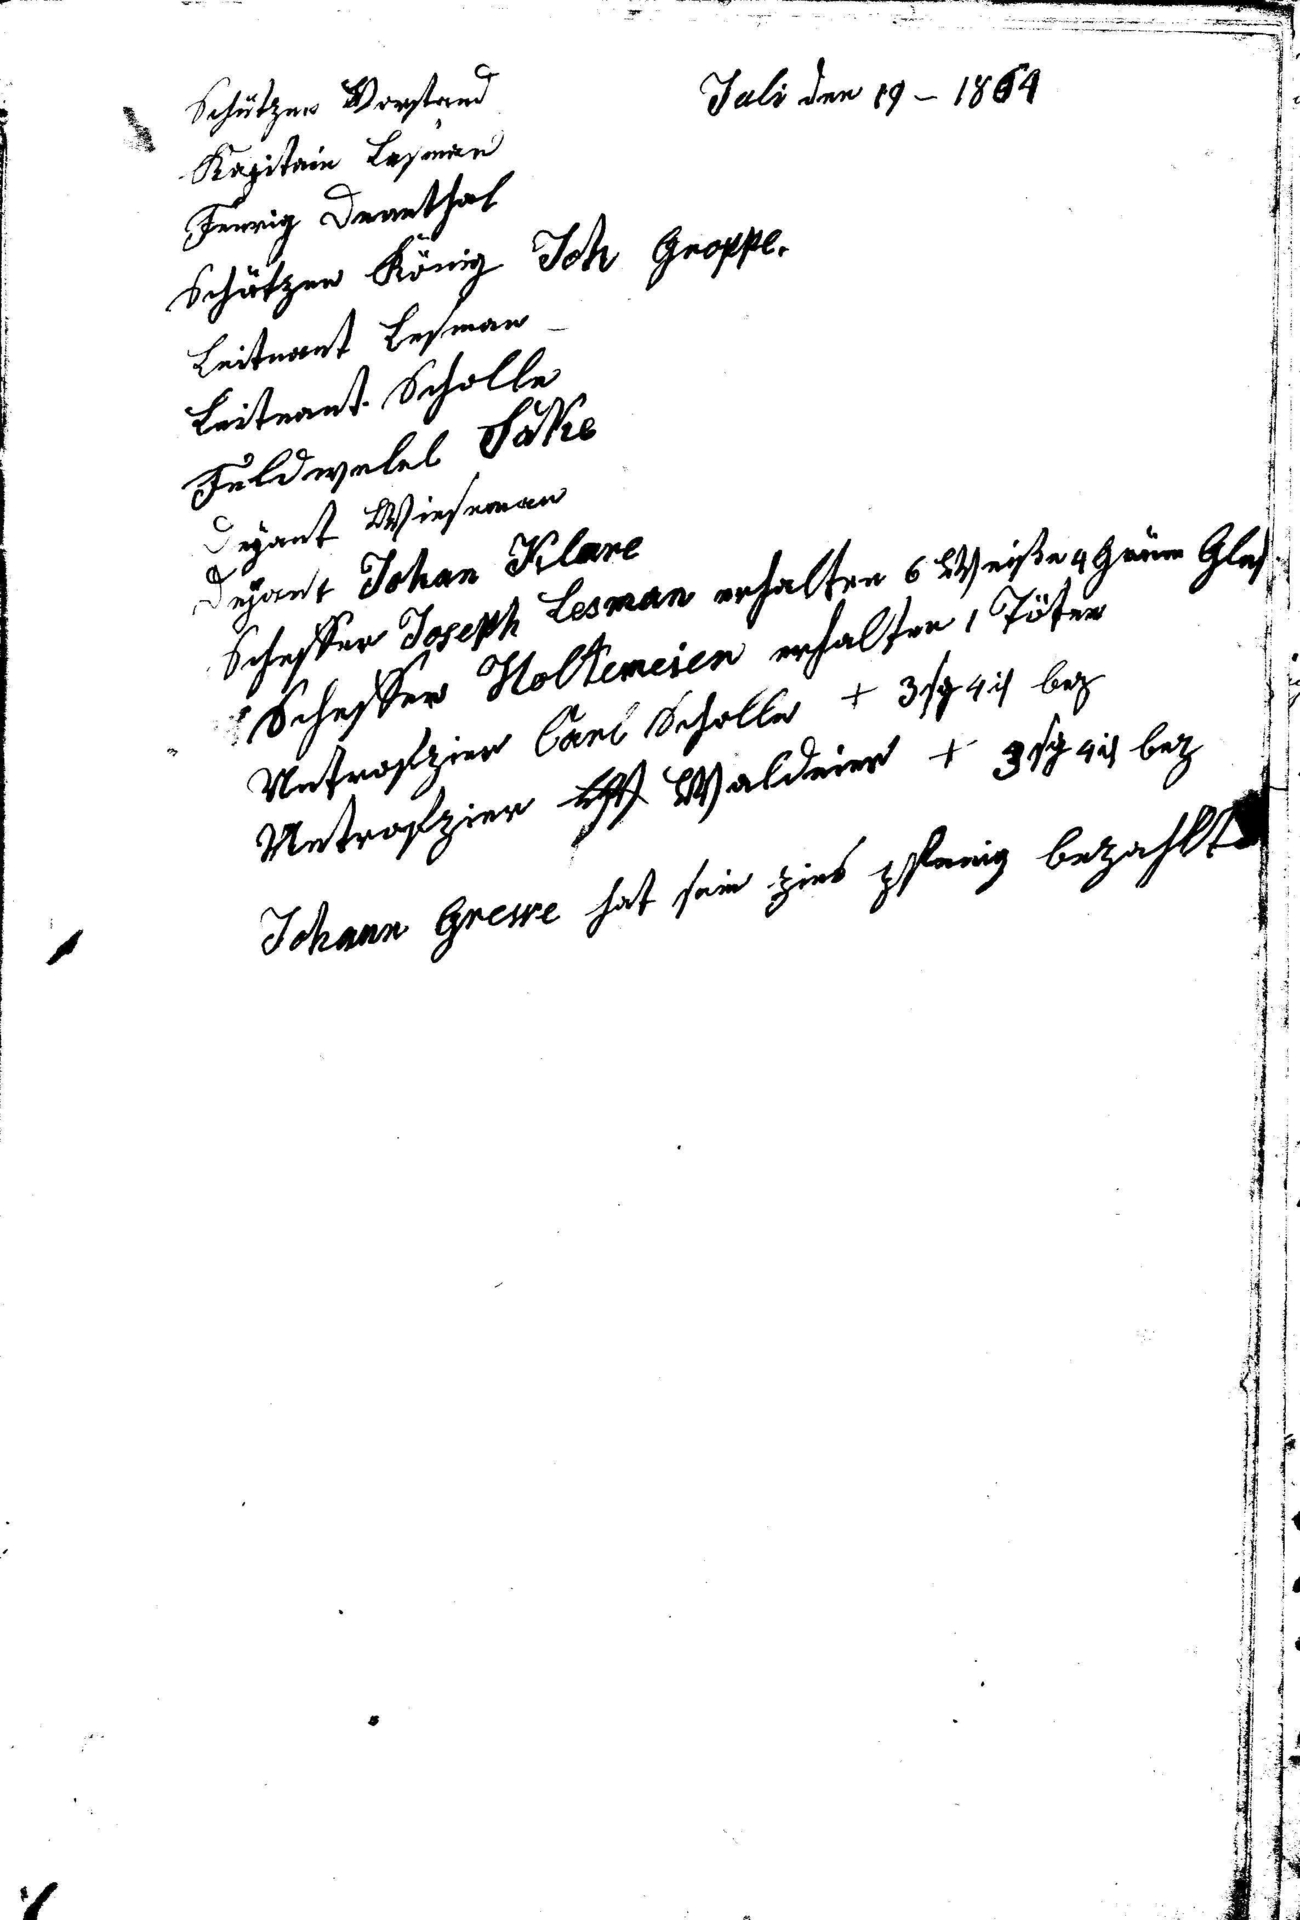 Schützen Vorstand Juli den 19 – 1864
Kapitain Lesman
Fenrig Dreenthal
Schützen König Joh Groppe.
Leitnant Lesman
Leitnant Scholle
Feldwebel Fäke
Dejant Wieseman
Dejant Johan Klare
Scheffer Joseph Lesman erhalten 6 Weiße 4 Grüne Glas
Scheffer Holtemeier erhalten 1 Töter
Untrofzier Carl Scholle + 3 sg 4 bez
Untrofzier Waldeier + 3 sg 4 bez
Johann Grewe hat sein zins pfenig bezahlt